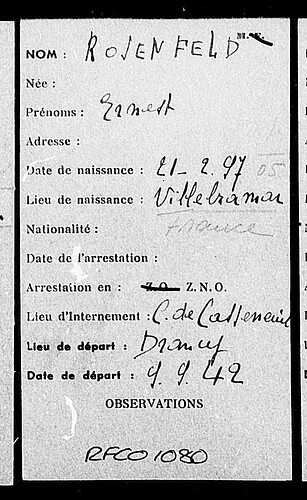 M. F.
NOM : ROSENFELD
Née :
Prénoms : Ernest
Adresse :
Date de naissance : 21-2.97 05
Lieu de naissance : Villebramar
Nationalité : France
Date de l'arrestation :
Arrestation en : Z.O. Z.N.O.
Lieu d'Internement : C. de Casseneuil
Lieu de départ : Drancy
Date de départ : 9.9.42
OBSERVATIONS
RFCO1080